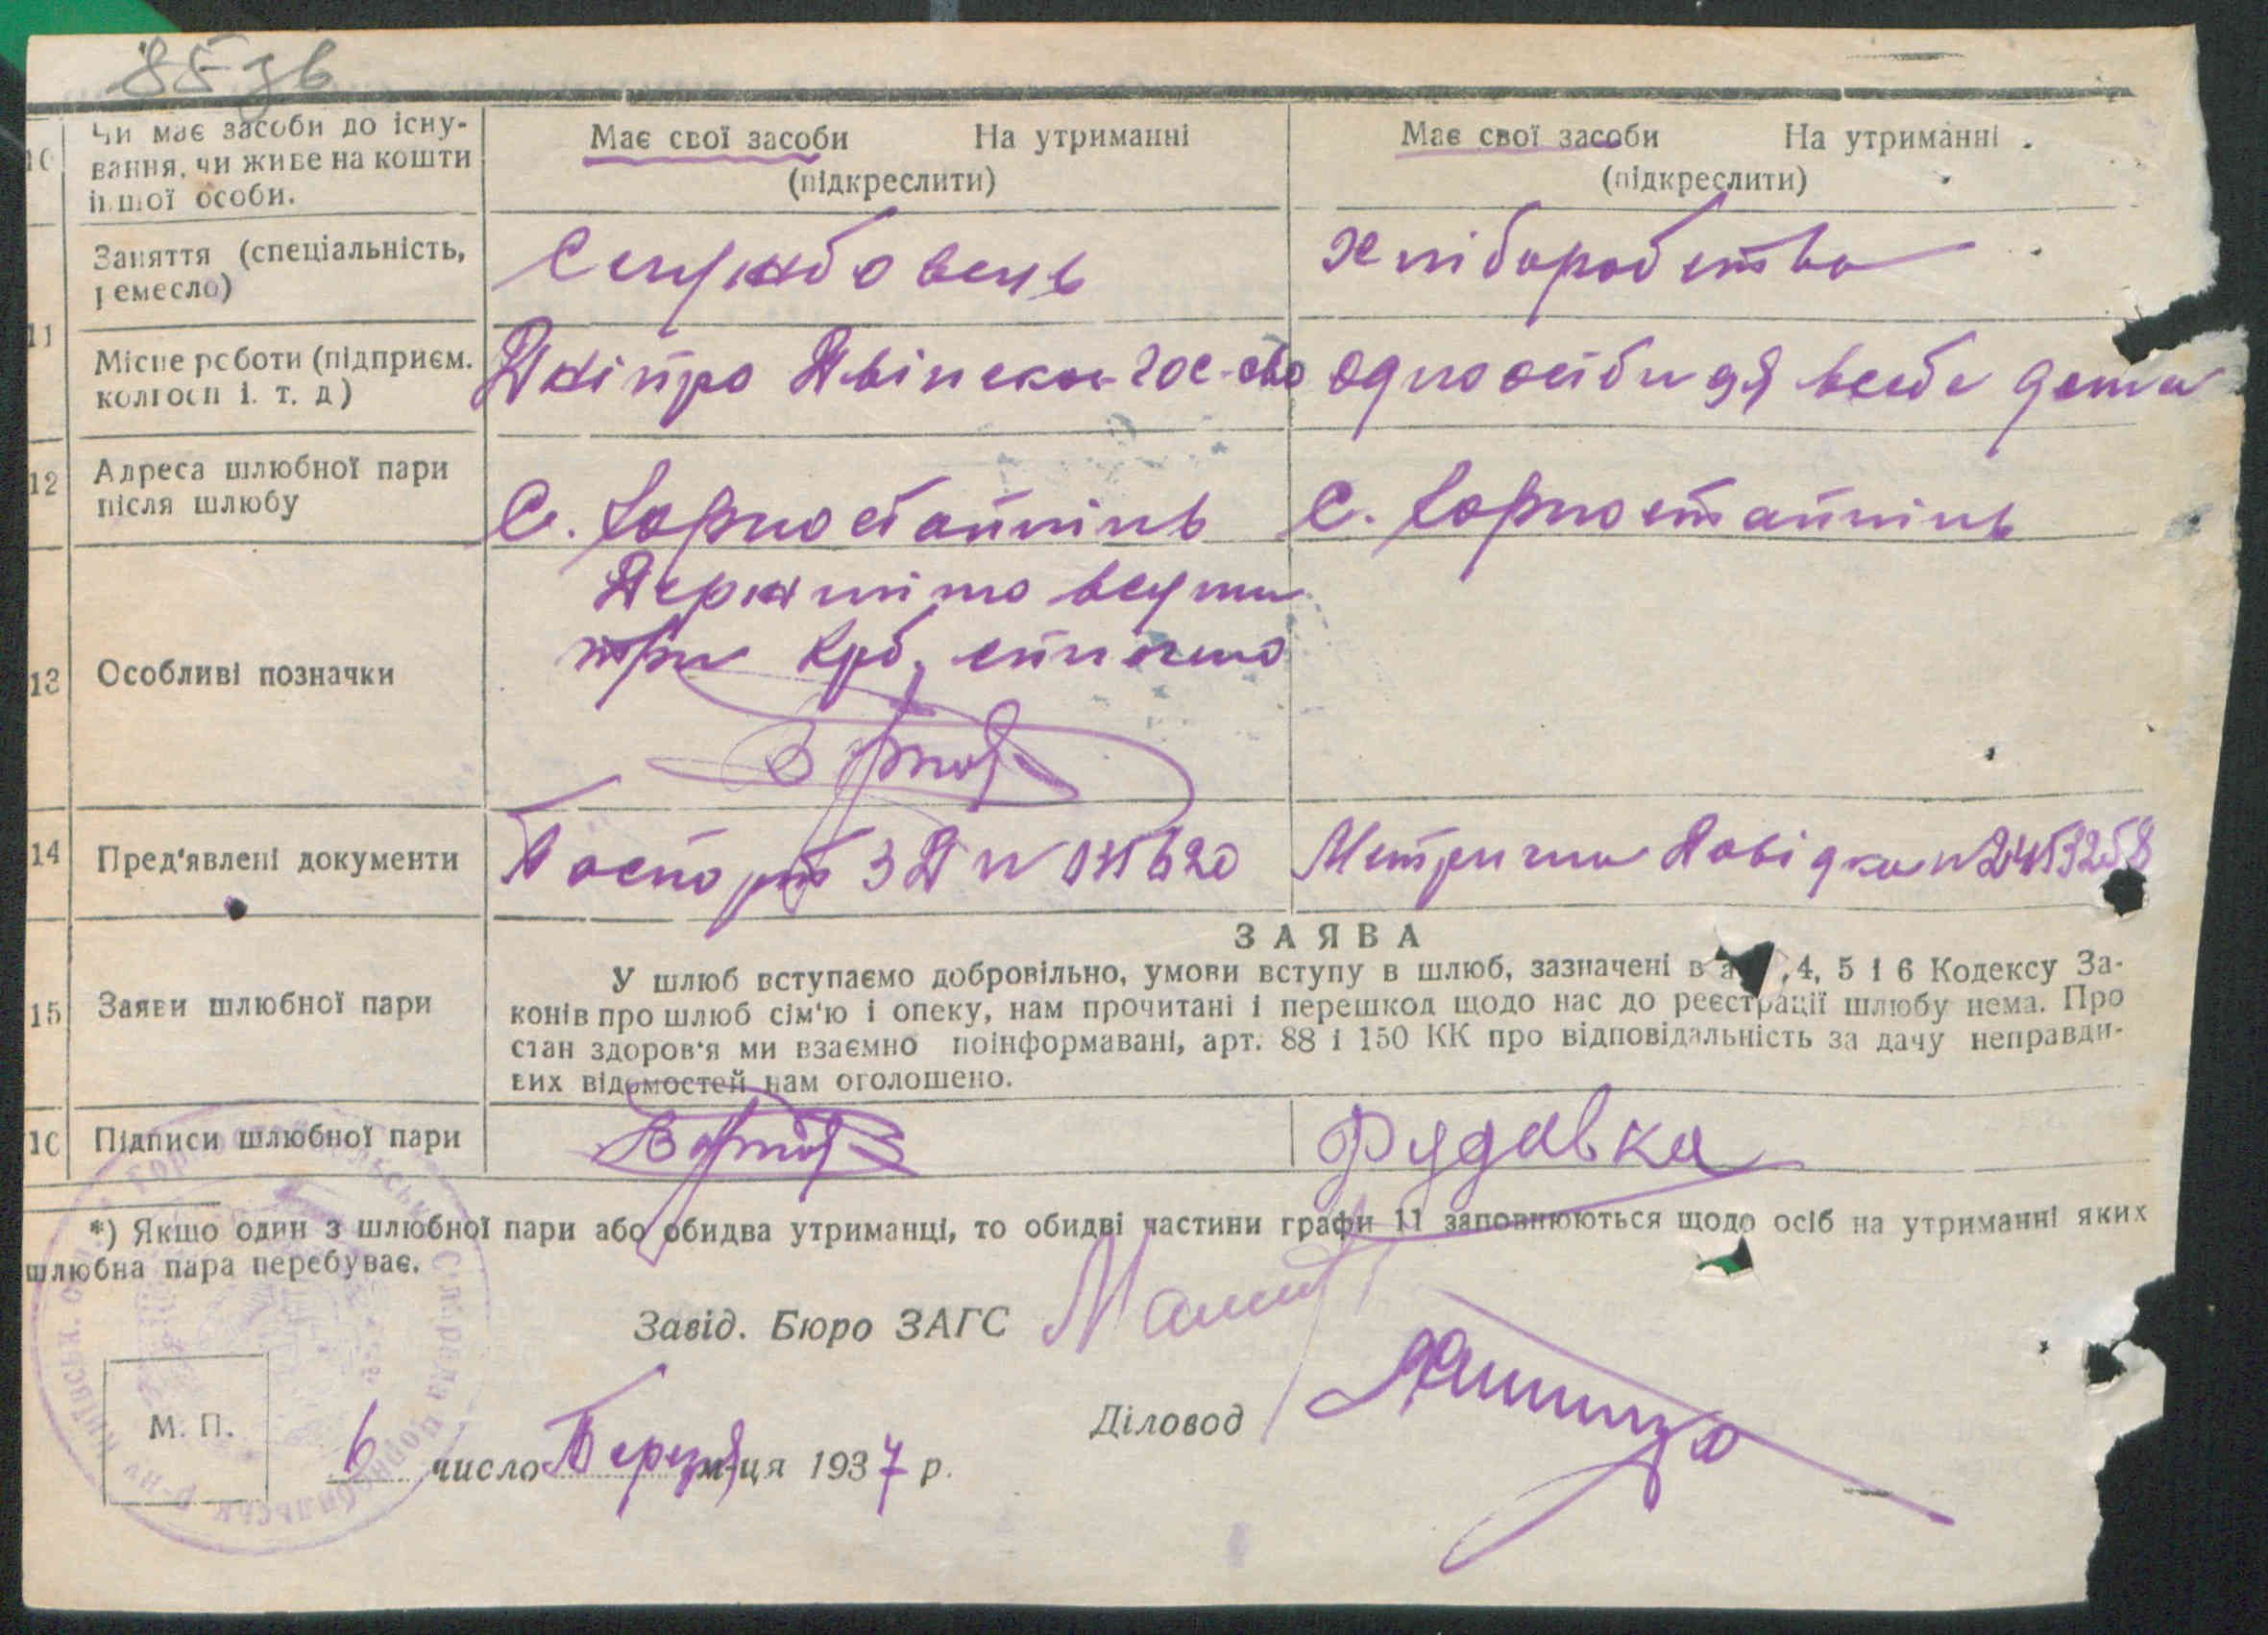 85 зв
10 Чи має засоби до існу-
вання, чи живе на кошти
іншої особи.
Має свої засоби На утриманні
(підкреслити)
Має свої засоби На утриманні
(підкреслити)
11 Заняття (спеціальність,
ремесло)
Службовець
Хліборобство
Місце роботи (підприєм.
колгосп і. т. д)
Дніпро Двінское гос-ство
одноосібниця в себе дома
12 Адреса шлюбної пари
після шлюбу
С. Горностайпіль
С. Горностайпіль
13 Особливі позначки
Держмито
три крб.
14 Пред'явлені документи
Паспорт ЗД №
Метрична Довідка № 2453258
15 Заяви шлюбної пари
ЗАЯВА
У шлюб вступаємо добровільно, умови вступу в шлюб, зазначені в а ,4, 5 і 6 Кодексу За-
конів про шлюб сім'ю і опеку, нам прочитані і перешкод щодо нас до реєстрації шлюбу нема. Про
стан здоров'я ми взаємно поінформавані, арт. 88 і 150 КК про відповідальність за дачу неправди-
вих відомостей нам оголошено.
16 Підписи шлюбної пари
Рудавка
*) Якшо один з шлюбної пари або обидва утриманці, то обидві частини графи 11 заповнюються щодо осіб на утриманні яких
шлюбна пара перебуває.
Завід. Бюро ЗАГС
Діловод
М. П.
6 число Березня м-ця 1937 р.